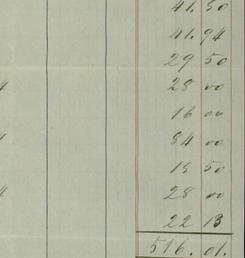 41.50
41.94
29 50
4 28 00
16 00
4 84 00
15 50
4 28 00
22 13
516.01.